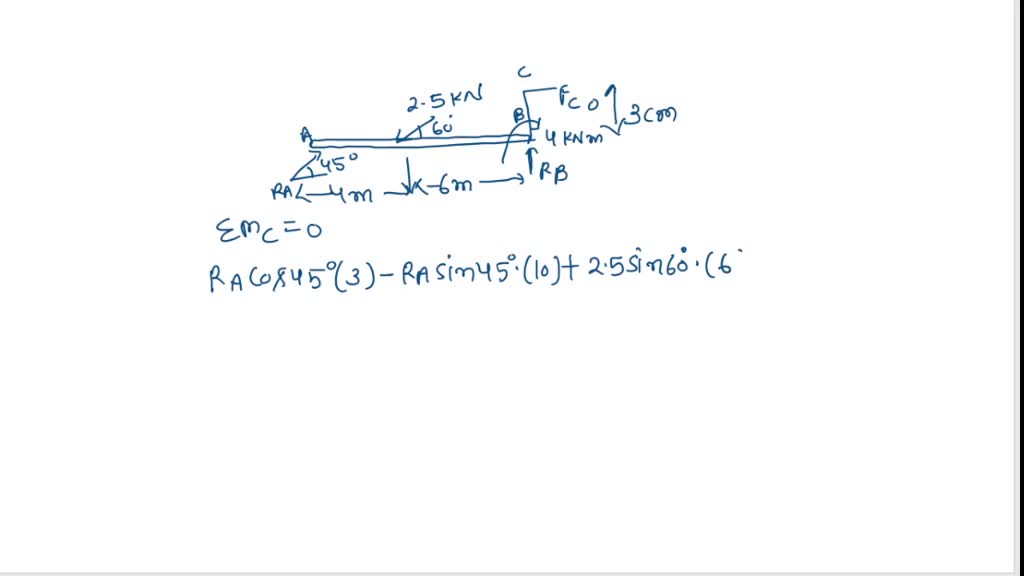 C
2.5 KN
FCO
3cm
A
60°
B
4 KNm
45°
RA
4m
6m
RB
ΣmC = 0
RA Cos45°(3) - RA sin45°.(10) + 2.5 sin60°.(6